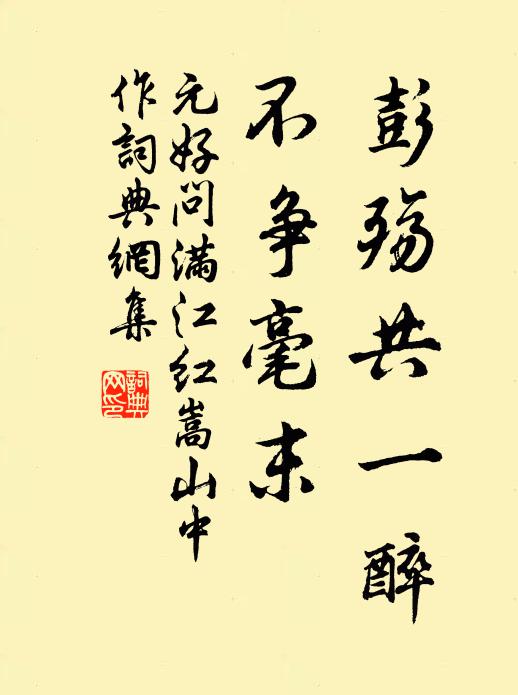 彭殤共一醉
不争毫末
元好问滿江红嵩山中
作詞典網集
詞典
网印